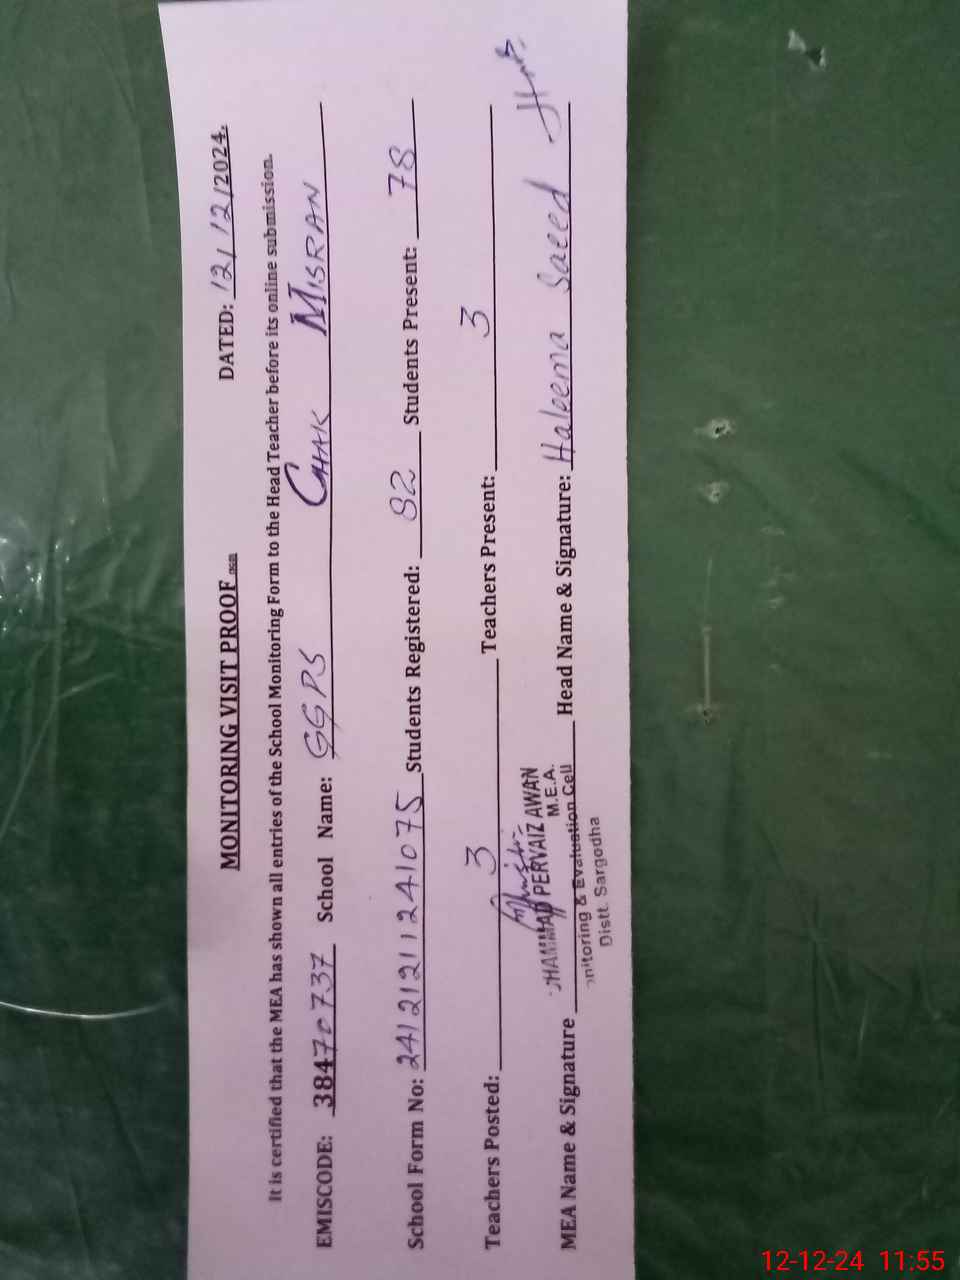 MONITORING VISIT PROOF DATED: 12/12/2024.
It is certified that the MEA has shown all entries of the School Monitoring Form to the Head Teacher before its online submission.
EMISCODE: 38470737 School Name: GGPS CHAK MISRAN
School Form No: 24121211241075 Students Registered: 82 Students Present: 78
Teachers Posted: 3 Teachers Present: 3
PERVAIZ AWAN
M.E.A.
MEA Name & Signature Head Name & Signature: Haleema Saeed
onitoring & Evaluation Cell
Distt. Sargodha
12-12-24 11:55